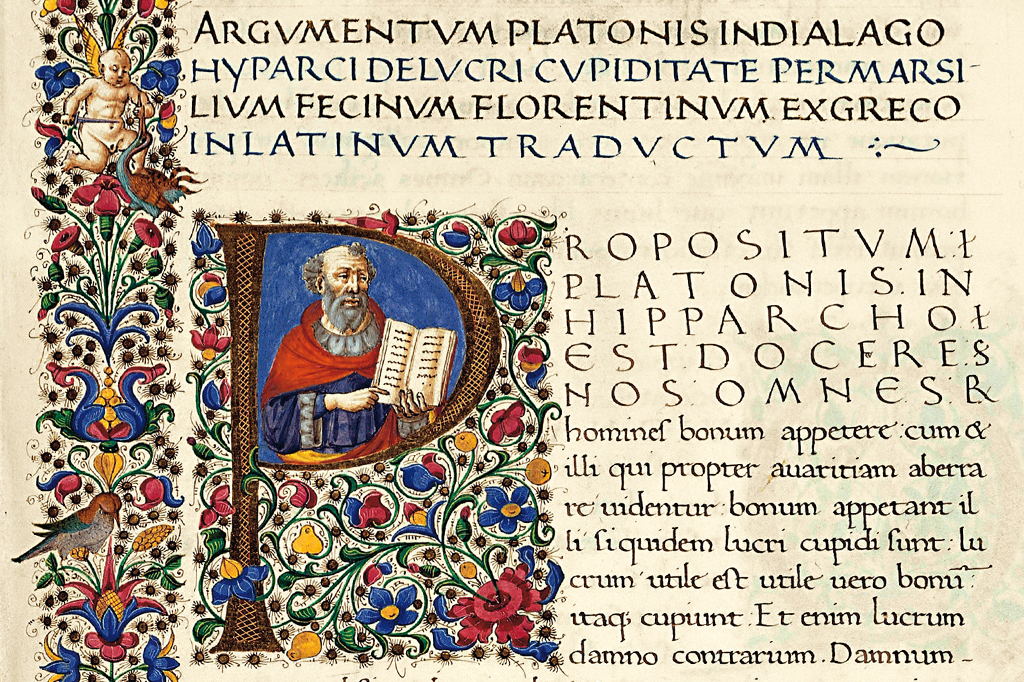 ARGVMENTVM PLATONIS IN DIALAGO
HYPARCI DE LVCRI CVPIDITATE PER MARSI-
LIVM FECINVM FLORENTINVM EX GRECO
IN LATINVM TRADVCTVM
PROPOSITVM
PLATONIS IN
HIPPARCHO
EST DOCERE
NOS OMNES
homines bonum appetere: cum &
illi qui propter auaritiam aberra
re uidentur: bonum appetant il
li siquidem lucri cupidi sunt: lu
crum utile est utile uero bonū:
itaq; cupiunt. Et enim lucrum
damno contrarium. Damnum -